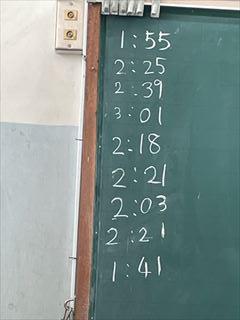 1:55
2:25
2:39
3:01
2:18
2:21
2:03
2:21
1:41